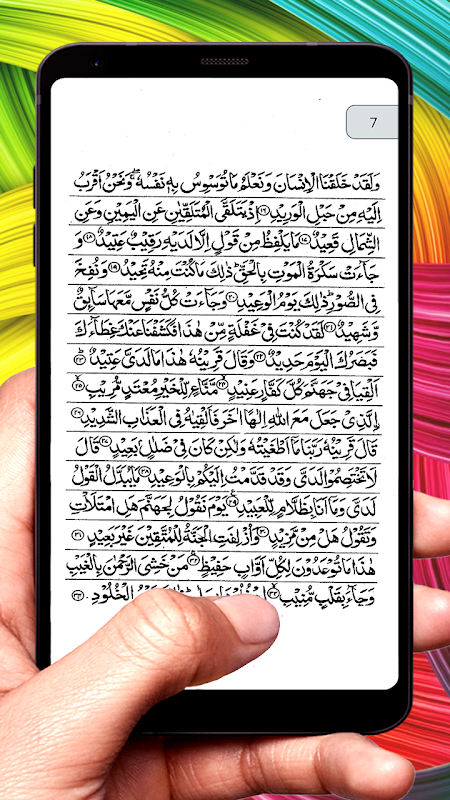 7
وَلَقَدْ خَلَقْنَا الْاِنْسَانَ وَنَعْلَمُ مَا تُوَسْوِسُ بِهٖ نَفْسُهٗ ۖ وَنَحْنُ اَقْرَبُ
اِلَيْهِ مِنْ حَبْلِ الْوَرِيْدِ ﴿١٦﴾ اِذْ يَتَلَقَّى الْمُتَلَقِّيٰنِ عَنِ الْيَمِيْنِ وَعَنِ
الشِّمَالِ قَعِيْدٌ ﴿١٧﴾ مَا يَلْفِظُ مِنْ قَوْلٍ اِلَّا لَدَيْهِ رَقِيْبٌ عَتِيْدٌ ﴿١٨﴾ وَ
جَآءَتْ سَكْرَةُ الْمَوْتِ بِالْحَقِّ ؕ ذٰلِكَ مَا كُنْتَ مِنْهُ تَحِيْدُ ﴿١٩﴾ وَنُفِخَ
فِى الصُّوْرِ ؕ ذٰلِكَ يَوْمُ الْوَعِيْدِ ﴿٢٠﴾ وَجَآءَتْ كُلُّ نَفْسٍ مَّعَهَا سَآئِقٌ
وَّشَهِيْدٌ ﴿٢١﴾ لَقَدْ كُنْتَ فِىْ غَفْلَةٍ مِّنْ هٰذَا فَكَشَفْنَا عَنْكَ غِطَآءَكَ
فَبَصَرُكَ الْيَوْمَ حَدِيْدٌ ﴿٢٢﴾ وَقَالَ قَرِيْنُهٗ هٰذَا مَا لَدَىَّ عَتِيْدٌ ﴿٢٣﴾
اَلْقِيَا فِىْ جَهَنَّمَ كُلَّ كَفَّارٍ عَنِيْدٍ ﴿٢٤﴾ مَّنَّاعٍ لِّلْخَيْرِ مُعْتَدٍ مُّرِيْبِ ﴿٢٥﴾
اِلَّذِىْ جَعَلَ مَعَ اللّٰهِ اِلٰهًا اٰخَرَ فَاَلْقِيٰهُ فِى الْعَذَابِ الشَّدِيْدِ ﴿٢٦﴾
قَالَ قَرِيْنُهٗ رَبَّنَا مَآ اَطْغَيْتُهٗ وَلٰكِنْ كَانَ فِىْ ضَلٰلٍۢ بَعِيْدٍ ﴿٢٧﴾ قَالَ
لَا تَخْتَصِمُوْا لَدَىَّ وَقَدْ قَدَّمْتُ اِلَيْكُمْ بِالْوَعِيْدِ ﴿٢٨﴾ مَا يُبَدَّلُ الْقَوْلُ
لَدَىَّ وَمَآ اَنَا بِظَلَّامٍ لِّلْعَبِيْدِ ﴿٢٩﴾ يَوْمَ نَقُوْلُ لِجَهَنَّمَ هَلِ امْتَلَاْتِ
وَتَقُوْلُ هَلْ مِنْ مَّزِيْدٍ ﴿٣٠﴾ وَاُزْلِفَتِ الْجَنَّةُ لِلْمُتَّقِيْنَ غَيْرَ بَعِيْدٍ ﴿٣١﴾
هٰذَا مَا تُوْعَدُوْنَ لِكُلِّ اَوَّابٍ حَفِيْظٍ ﴿٣٢﴾ مَنْ خَشِىَ الرَّحْمٰنَ بِالْغَيْبِ
وَجَآءَ بِقَلْبٍ مُّنِيْبِ ﴿٣٣﴾ الْخُلُوْدِ ﴿٣٤﴾